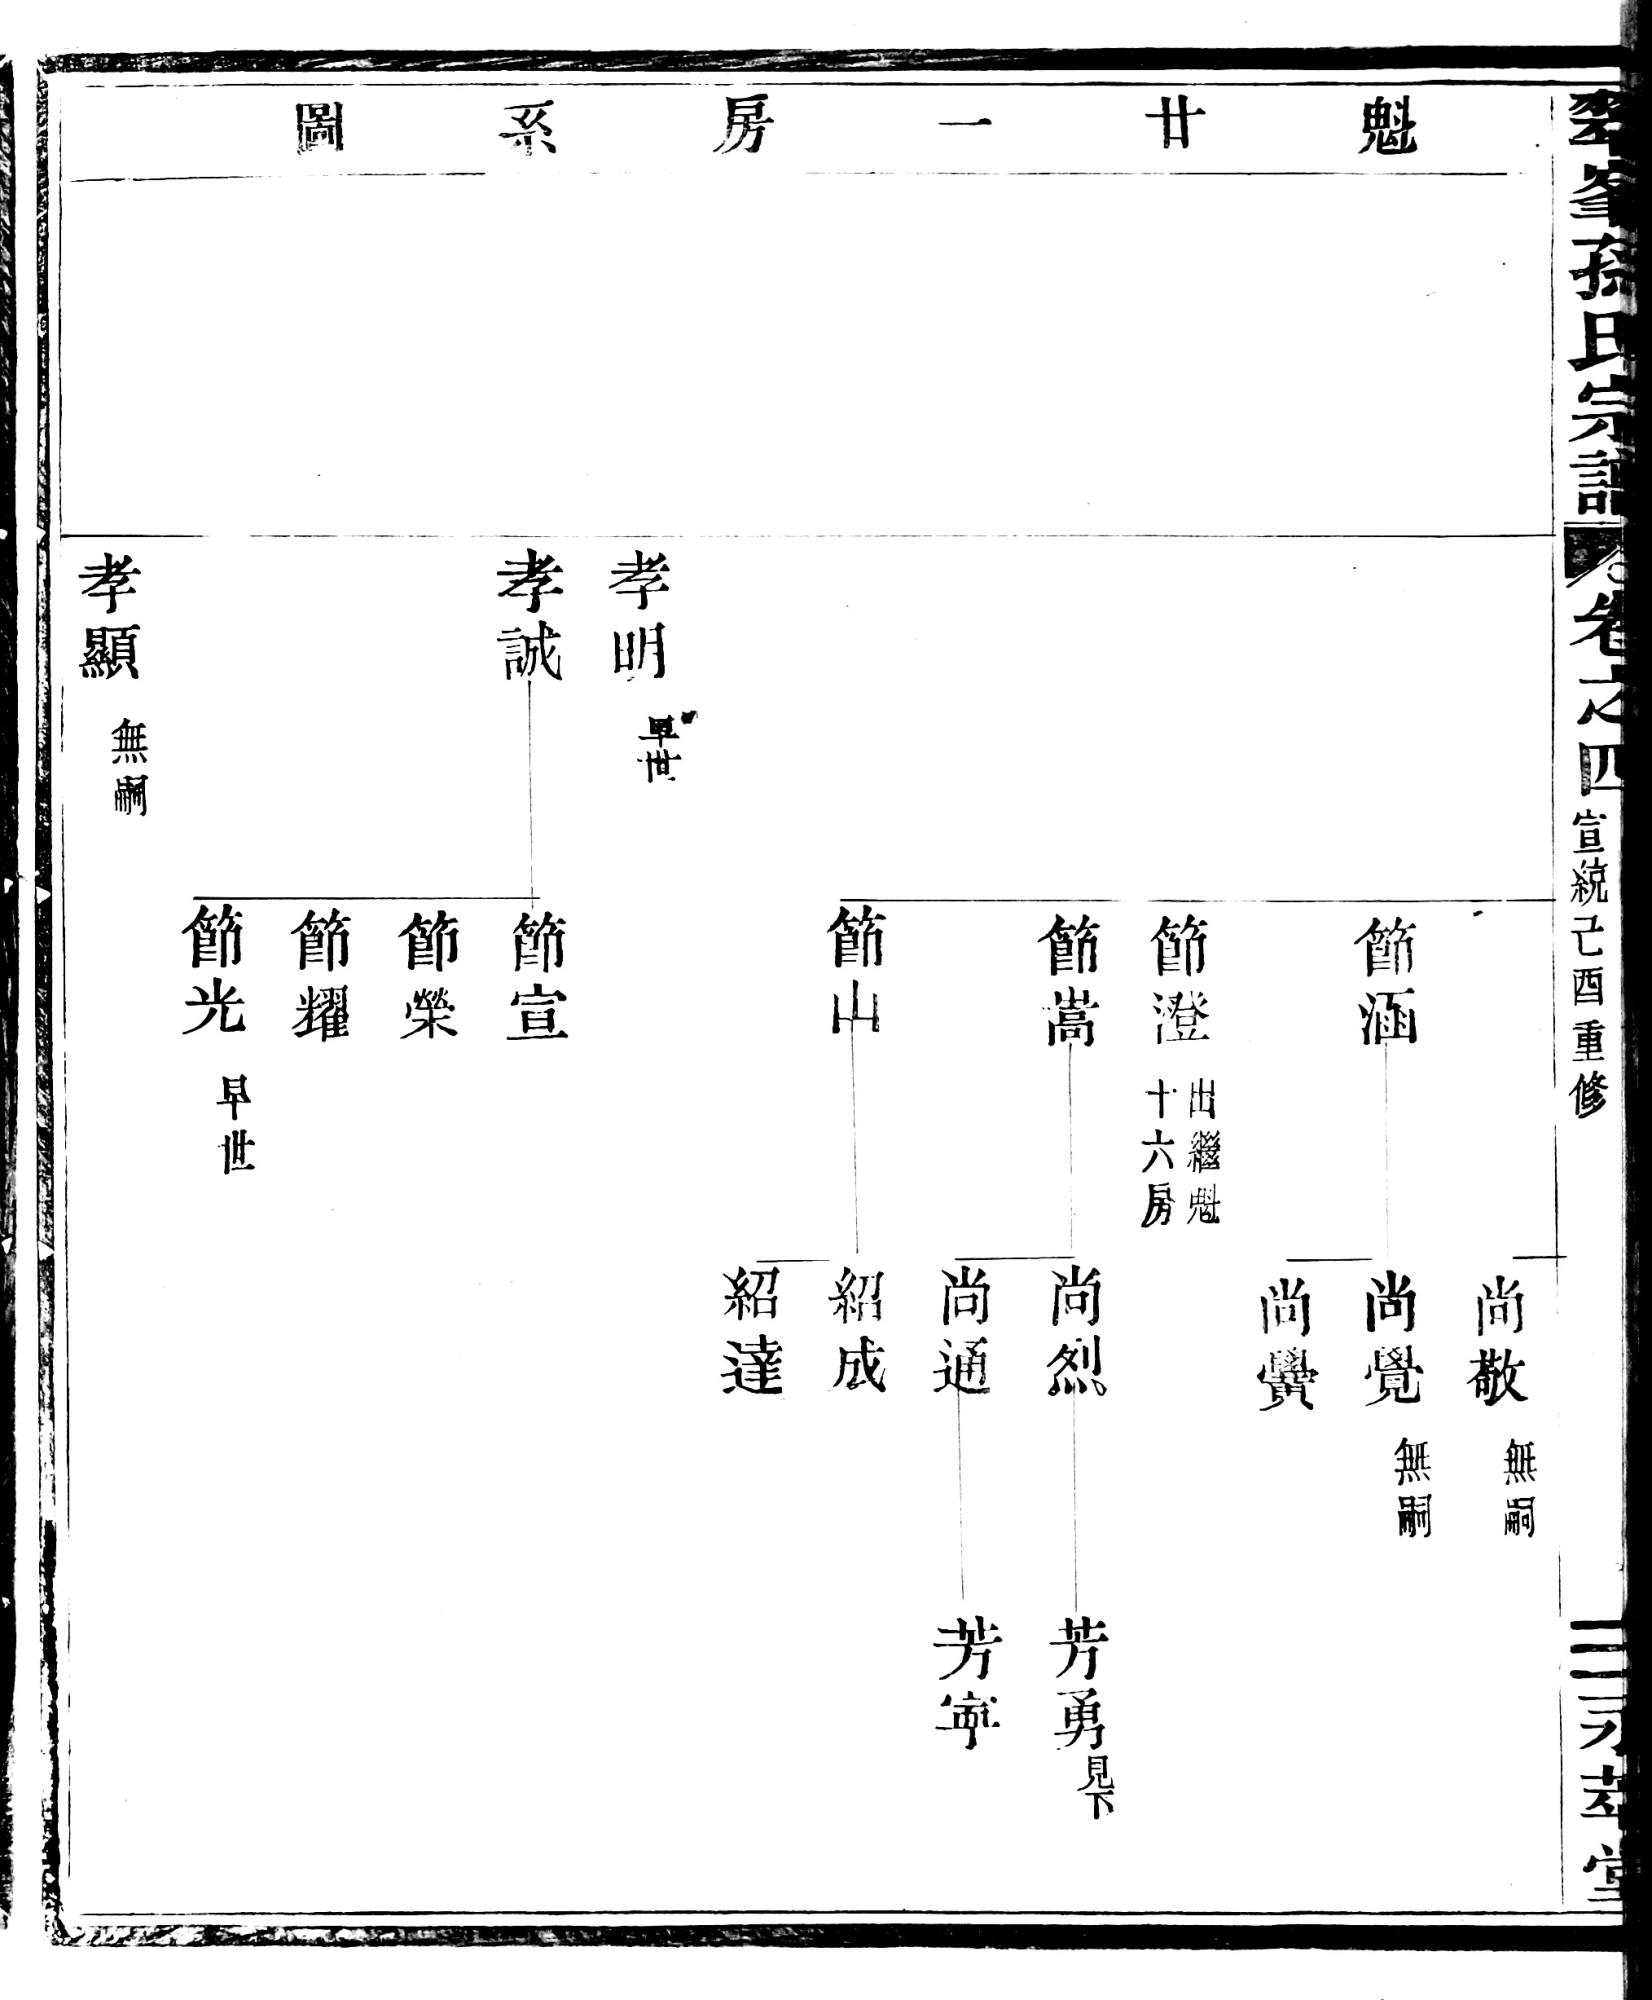 孫氏宗譜
卷之四
宣統己酉重修
三
永萃堂
魁廿一房系圖
孝明
早世
孝誠
孝顯
無嗣
節涵
節澄
出繼魁
十六房
節嵩
節山
節宣
節榮
節耀
節光
早世
尚敬
無嗣
尚覺
無嗣
尚黌
尚烈
尚通
紹成
紹達
芳勇
見下
芳寧